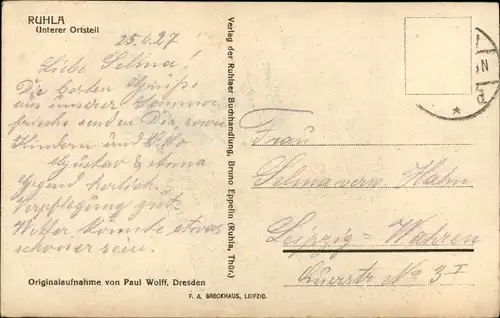 RUHLA
Unterer Ortsteil
25.6.27
Liebe Selma!
Die besten Grüße
aus unserer Sommer-
frische senden Dir, sowie
Kindern und Otto
Gustav & Anna
Gegend herlich
Verpflegung gut
Wetter könnte etwas
schöner sein.
Originalaufnahme von Paul Wolff, Dresden
Verlag der Ruhlaer Buchhandlung, Bruno Eppelin (Ruhla, Thür.)
F. A. BROCKHAUS, LEIPZIG.
Frau
Selma verw. Hahn
Leipzig-Wahren
No 3 I